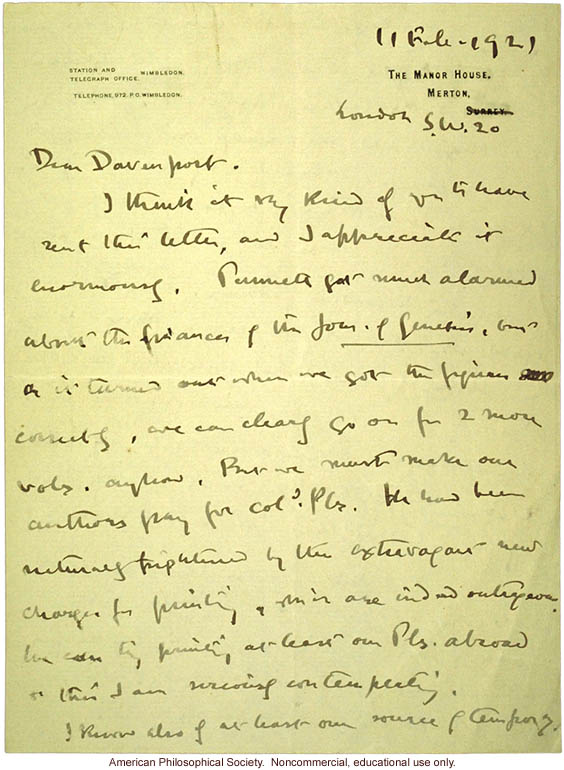 11 Feb. 1921
STATION AND
TELEGRAPH OFFICE, WIMBLEDON.
TELEPHONE, 972, P.O. WIMBLEDON.
THE MANOR HOUSE,
MERTON,
SURREY.
London S.W. 20
Dear Davenport.
I think it very kind of you to have
sent this letter, and I appreciate it
enormously. Punnett got much alarmed
about the finances of the Jour. of Genetics, but
as it turned out when we got the figures
correctly, we can clearly go on for 2 more
vols. anyhow. But we must make our
authors pay for cold. Pls. He had been
naturally frightened by the extravagant new
charges for printing, which are indeed outrageous.
We can try printing at least our Pls. abroad
& this I am seriously contemplating.
I know also of at least one source of temporary
American Philosophical Society. Noncommercial, educational use only.